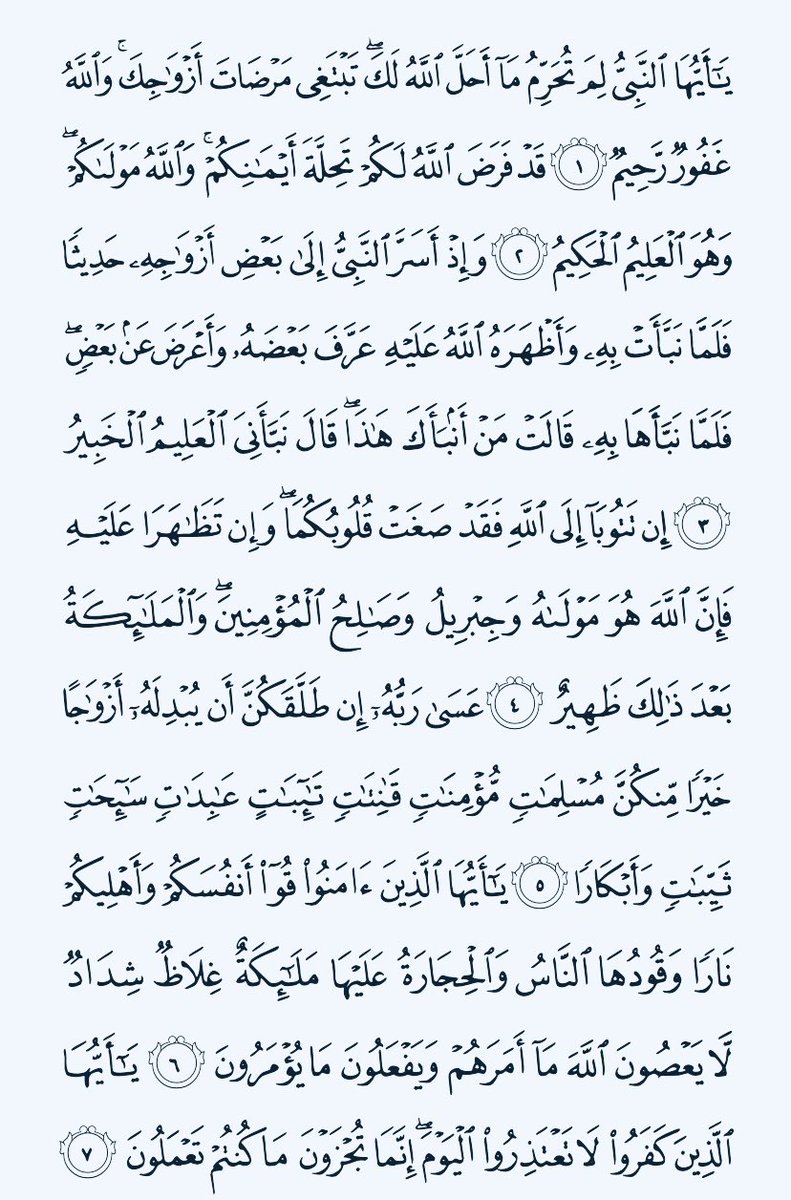 يَـٰٓأَيُّهَا ٱلنَّبِىُّ لِمَ تُحَرِّمُ مَآ أَحَلَّ ٱللَّهُ لَكَ ۖ تَبْتَغِى مَرْضَاتَ أَزْوَٰجِكَ ۚ وَٱللَّهُ
غَفُورٌ رَّحِيمٌ ١ قَدْ فَرَضَ ٱللَّهُ لَكُمْ تَحِلَّةَ أَيْمَـٰنِكُمْ ۚ وَٱللَّهُ مَوْلَىٰكُمْ ۖ
وَهُوَ ٱلْعَلِيمُ ٱلْحَكِيمُ ٢ وَإِذْ أَسَرَّ ٱلنَّبِىُّ إِلَىٰ بَعْضِ أَزْوَٰجِهِۦ حَدِيثًا
فَلَمَّا نَبَّأَتْ بِهِۦ وَأَظْهَرَهُ ٱللَّهُ عَلَيْهِ عَرَّفَ بَعْضَهُۥ وَأَعْرَضَ عَنۢ بَعْضٍ ۖ
فَلَمَّا نَبَّأَهَا بِهِۦ قَالَتْ مَنْ أَنۢبَأَكَ هَـٰذَا ۖ قَالَ نَبَّأَنِىَ ٱلْعَلِيمُ ٱلْخَبِيرُ
٣ إِن تَتُوبَآ إِلَى ٱللَّهِ فَقَدْ صَغَتْ قُلُوبُكُمَا ۖ وَإِن تَظَـٰهَرَا عَلَيْهِ
فَإِنَّ ٱللَّهَ هُوَ مَوْلَىٰهُ وَجِبْرِيلُ وَصَـٰلِحُ ٱلْمُؤْمِنِينَ ۖ وَٱلْمَلَـٰٓئِكَةُ
بَعْدَ ذَٰلِكَ ظَهِيرٌ ٤ عَسَىٰ رَبُّهُۥٓ إِن طَلَّقَكُنَّ أَن يُبْدِلَهُۥٓ أَزْوَٰجًا
خَيْرًا مِّنكُنَّ مُسْلِمَـٰتٍ مُّؤْمِنَـٰتٍ قَـٰنِتَـٰتٍ تَـٰٓئِبَـٰتٍ عَـٰبِدَٰتٍ سَـٰٓئِحَـٰتٍ
ثَيِّبَـٰتٍ وَأَبْكَارًا ٥ يَـٰٓأَيُّهَا ٱلَّذِينَ ءَامَنُوا۟ قُوٓا۟ أَنفُسَكُمْ وَأَهْلِيكُمْ
نَارًا وَقُودُهَا ٱلنَّاسُ وَٱلْحِجَارَةُ عَلَيْهَا مَلَـٰٓئِكَةٌ غِلَاظٌ شِدَادٌ
لَّا يَعْصُونَ ٱللَّهَ مَآ أَمَرَهُمْ وَيَفْعَلُونَ مَا يُؤْمَرُونَ ٦ يَـٰٓأَيُّهَا
ٱلَّذِينَ كَفَرُوا۟ لَا تَعْتَذِرُوا۟ ٱلْيَوْمَ ۖ إِنَّمَا تُجْزَوْنَ مَا كُنتُمْ تَعْمَلُونَ ٧